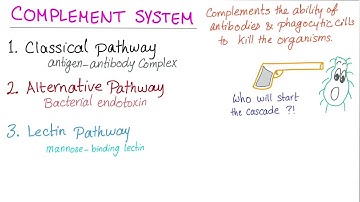 COMPLEMENT SYSTEM
1. Classical Pathway
antigen-antibody Complex
2. Alternative Pathway
Bacterial endotoxin
3. Lectin Pathway
mannose-binding lectin
Complements the ability of
antibodies & phagocytic cells
to kill the organisms.
Who will start
the cascade ?!